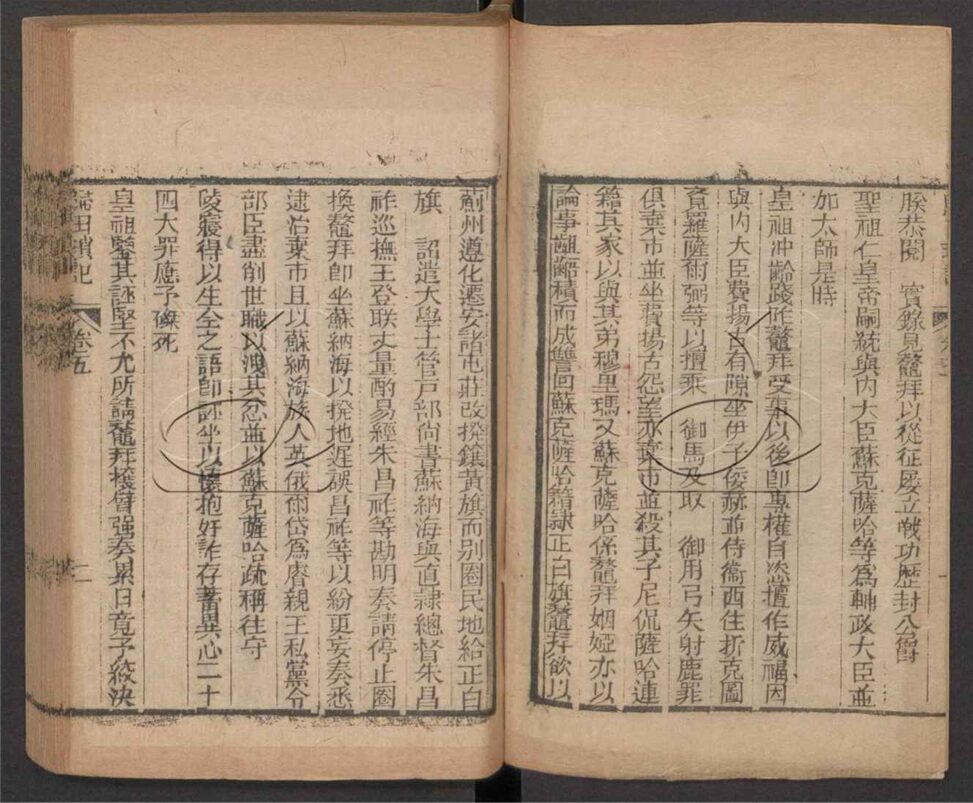 朕恭閱　實錄見鼇拜以從征屢立戰功歷封公爵
聖祖仁皇帝嗣統與內大臣蘇克薩哈等爲輔政大臣並
加太師是時
皇祖沖齡踐阼鼇拜受事以後卽專權自恣擅作威福因
與內大臣費揚古有隙坐伊子倭赫並侍衞西住折克圖
覺羅薩爾弼等以擅乘　御馬及取　御用弓矢射鹿罪
俱棄市並坐費揚古怨望亦棄市並殺其子尼侃薩哈連
籍其家以與其弟穆里瑪又蘇克薩哈係鼇拜姻婭亦以
論事齟齬積而成讐回蘇克薩哈籍隸正白旗鼇拜欲以
薊州遵化遷安諸屯莊改撥鑲黃旗而別圈民地給正白
旗　詔遣大學士管戶部尙書蘇納海與直隷總督朱昌
祚巡撫王登联丈量酌易經朱昌祚等勘明奏請停止圈
換鼇拜卽坐蘇納海以撥地遲誤昌祚等以紛更妄奏悉
逮治棄市且以蘇納海族人英俄爾岱爲睿親王私黨令
部臣盡削世職以洩其忿並以蘇克薩哈疏稱往守
陵寢得以生全之語卽誣坐以懷抱奸詐存蓄異心二十
四大罪應予磔死
皇祖鑒其誣堅不允所請鼇拜攘臂强奏累日竟予絞決
歸田瑣記　卷五　二